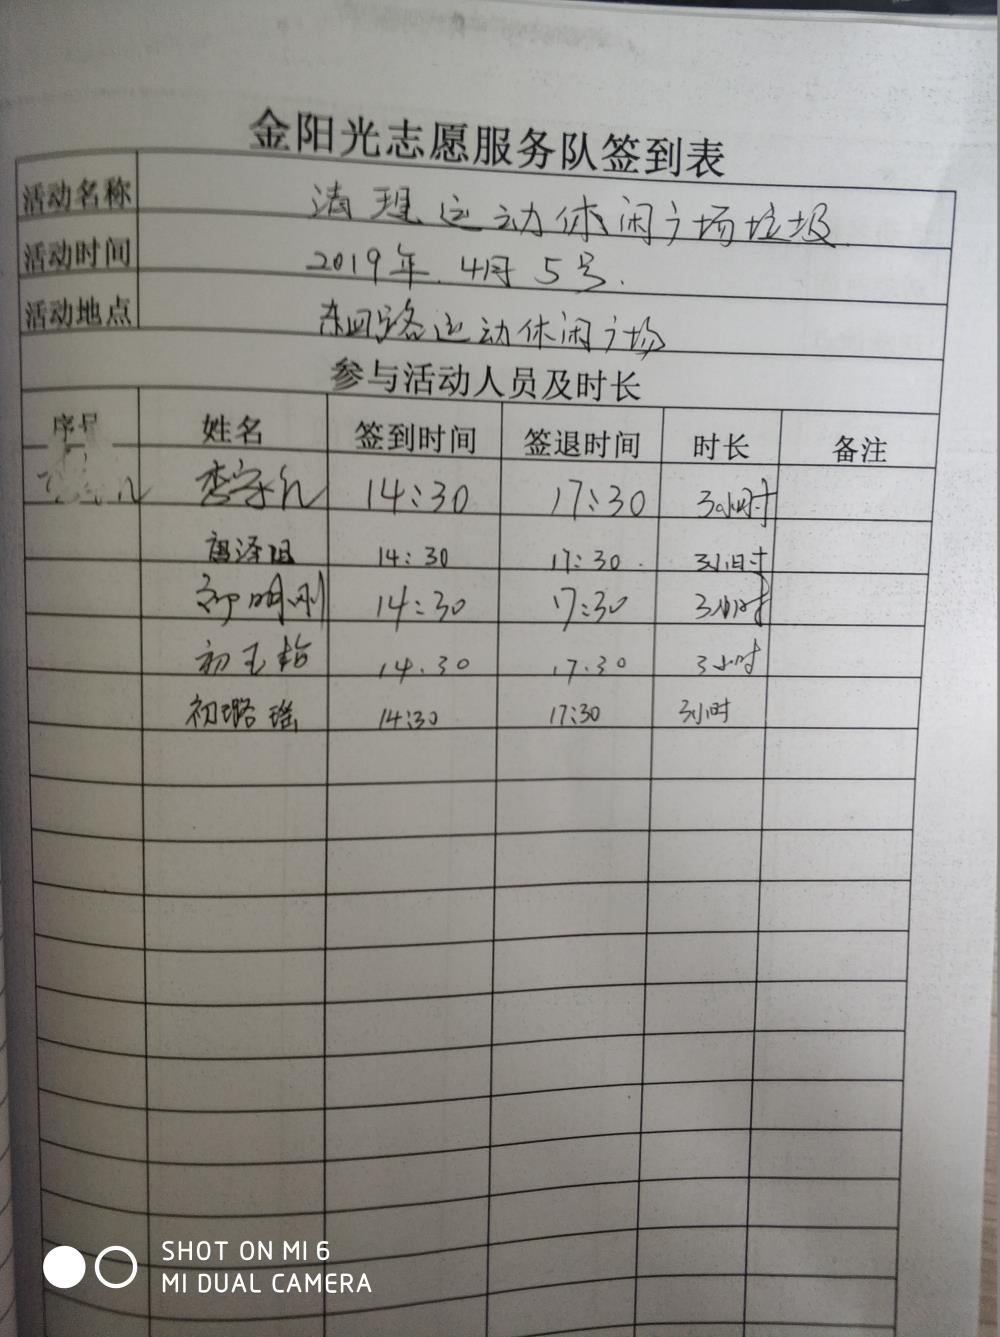 金阳光志愿服务队签到表
活动名称 清理运动休闲广场垃圾.
活动时间 2019年.4月5号.
活动地点 东四路运动休闲广场
参与活动人员及时长
序号 姓名 签到时间 签退时间 时长 备注
14:30 17:30 3小时
14:30 17:30. 3小时
邵明刚 14:30 17:30 3小时
初玉 14.30 17.30 3小时
初璐瑶 14:30 17:30 3小时
SHOT ON MI 6
MI DUAL CAMERA